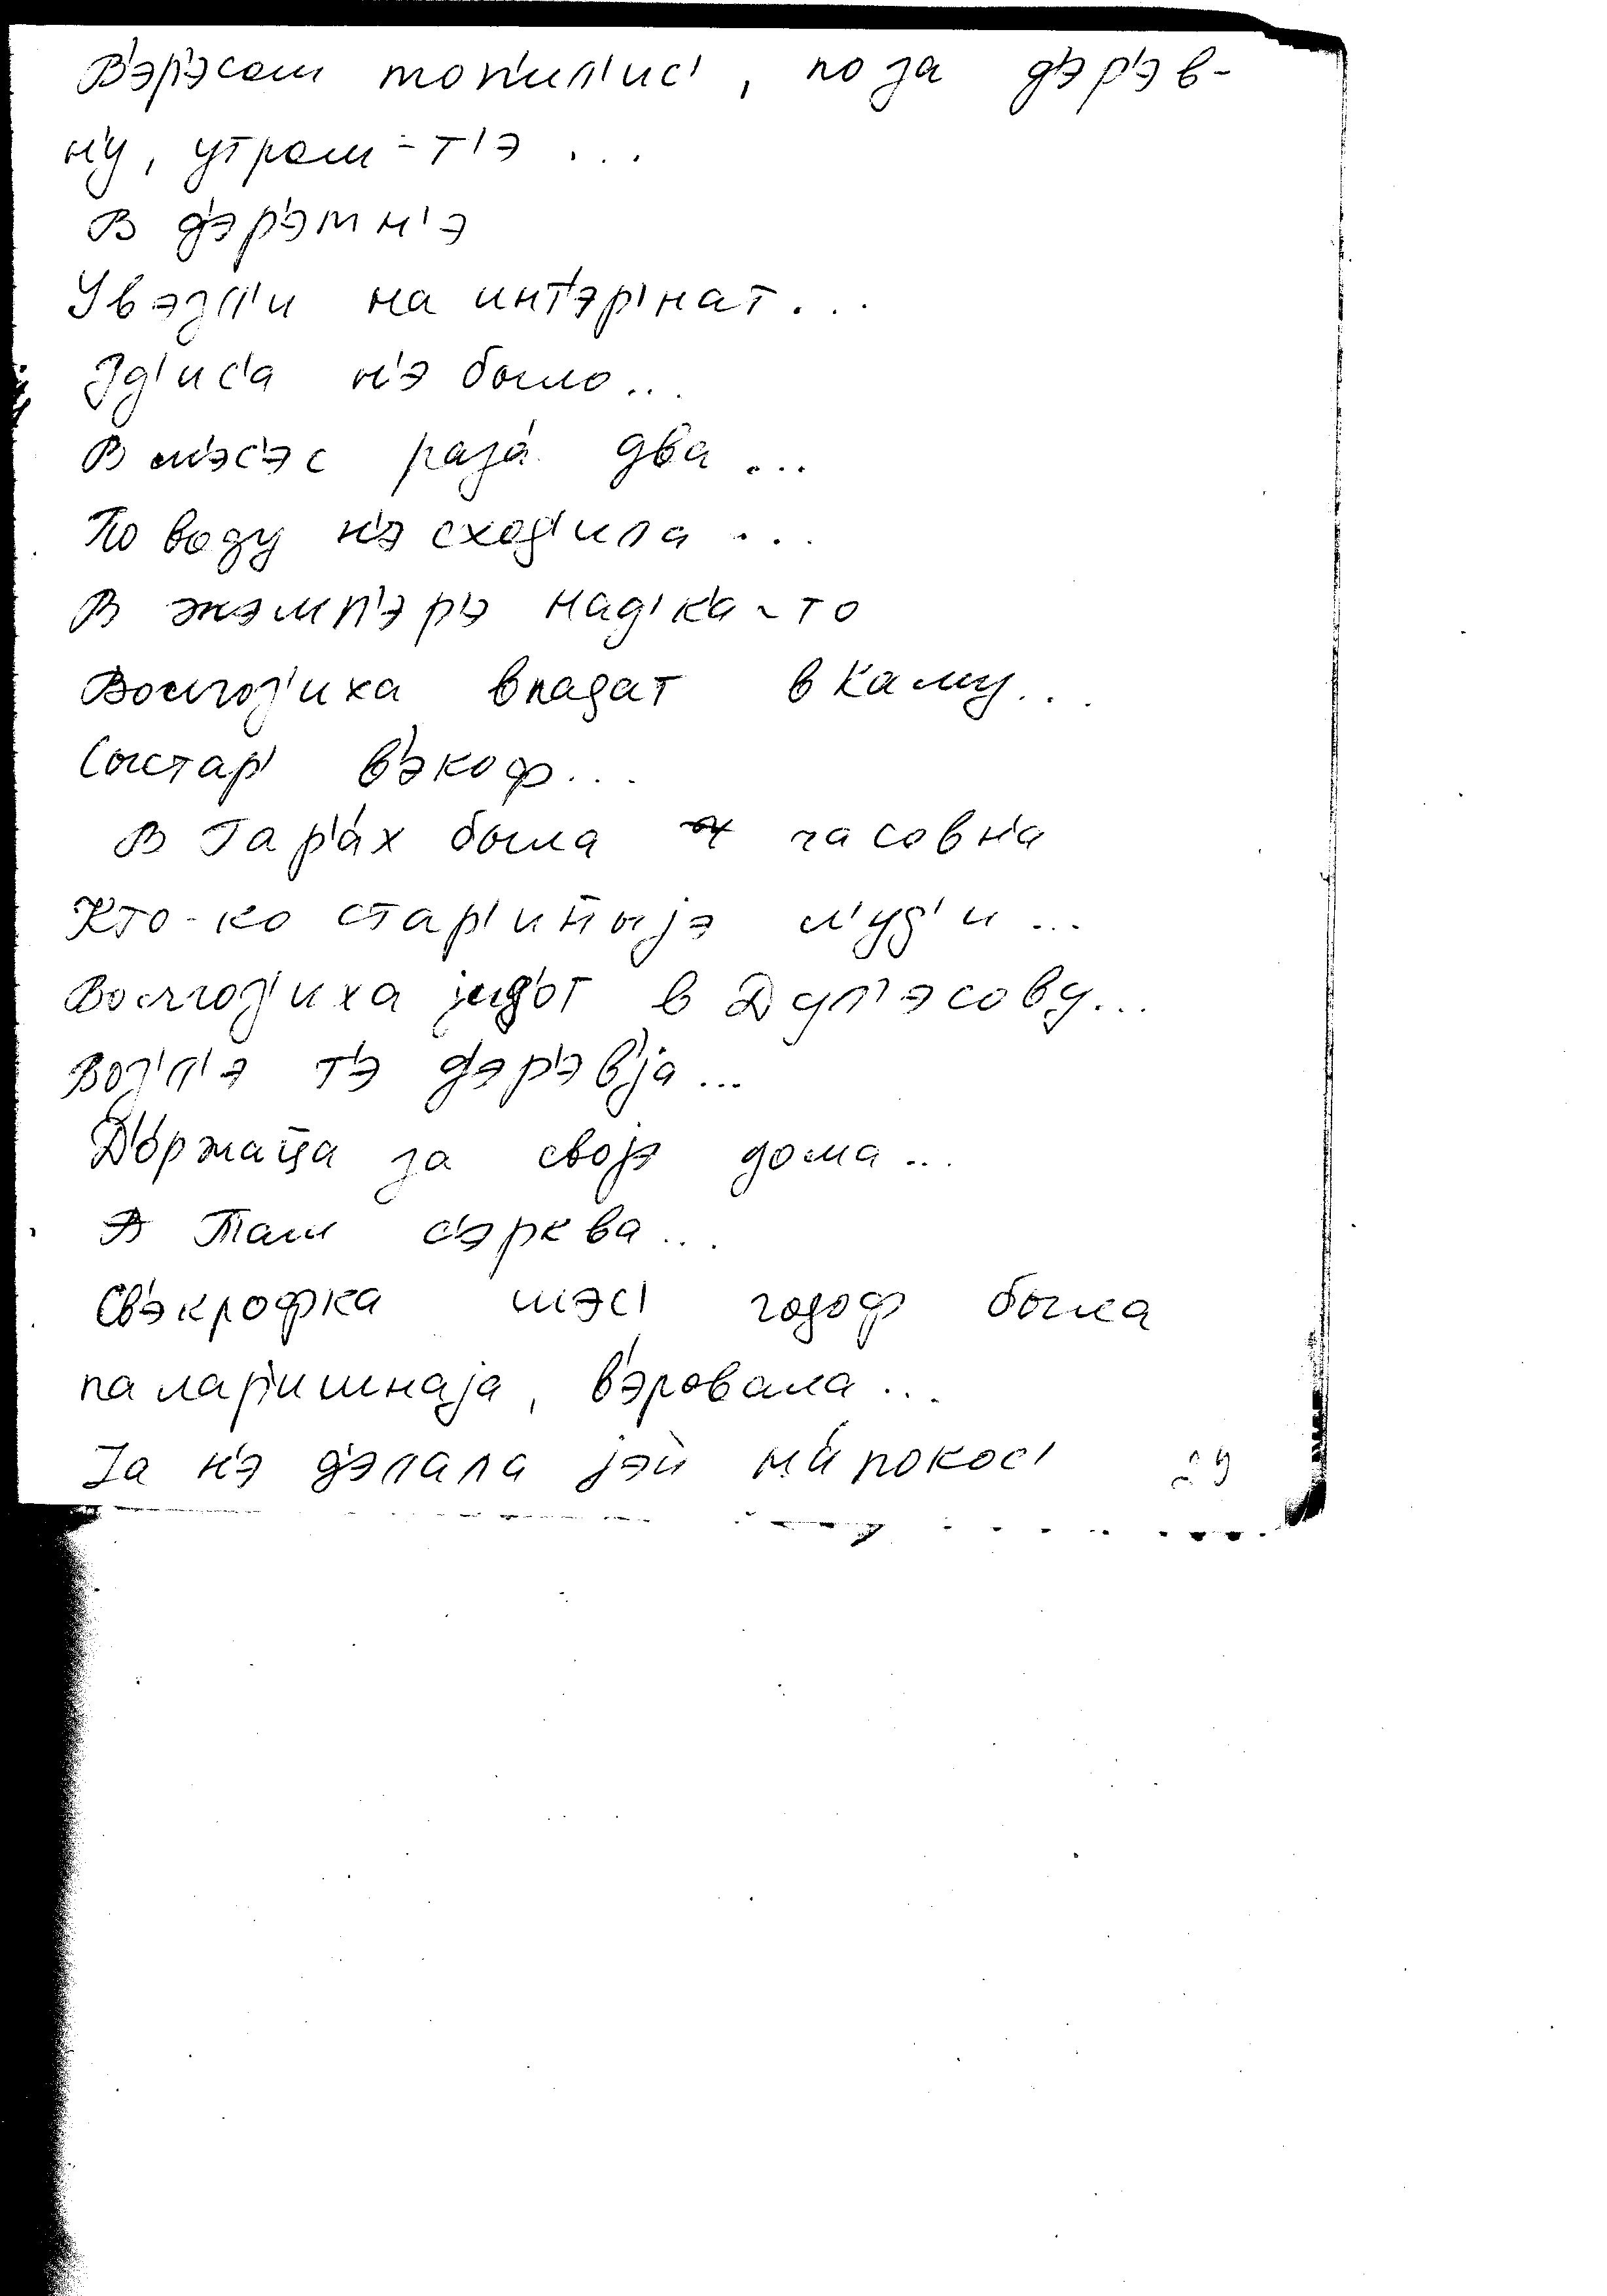 В'эр'эсом топ'ил'ис', поза д'эр'эв-
н'у, утром-т'э ...
В д'эр'эмн'э
Увэзл'и на инт'эр'нат...
Зд'ис'а н'э было...
В м'эс'эс раза́ два ...
По воду н'э сход'ила ...
В жэмп'эр'э над'к'а-то
Вомгоз'иха впадат в Каму...
Сыстар' в'экоф...
В Гар'а́х была часовн'а
Кто-ко стар'ин̄ыjэ л'уд'и ...
Вомгоз'иха jид'от в Дул'эсову...
Воз'л'э т'э д'эр'эв'jа ...
Д'о́ржац̄а за своjэ дома ...
Там с'эрква ...
Св'экрофка шэс' годоф была
палар'ишнаjа, в'эровала ...
Jа н'э д'элала jэй н'и́покос'
29